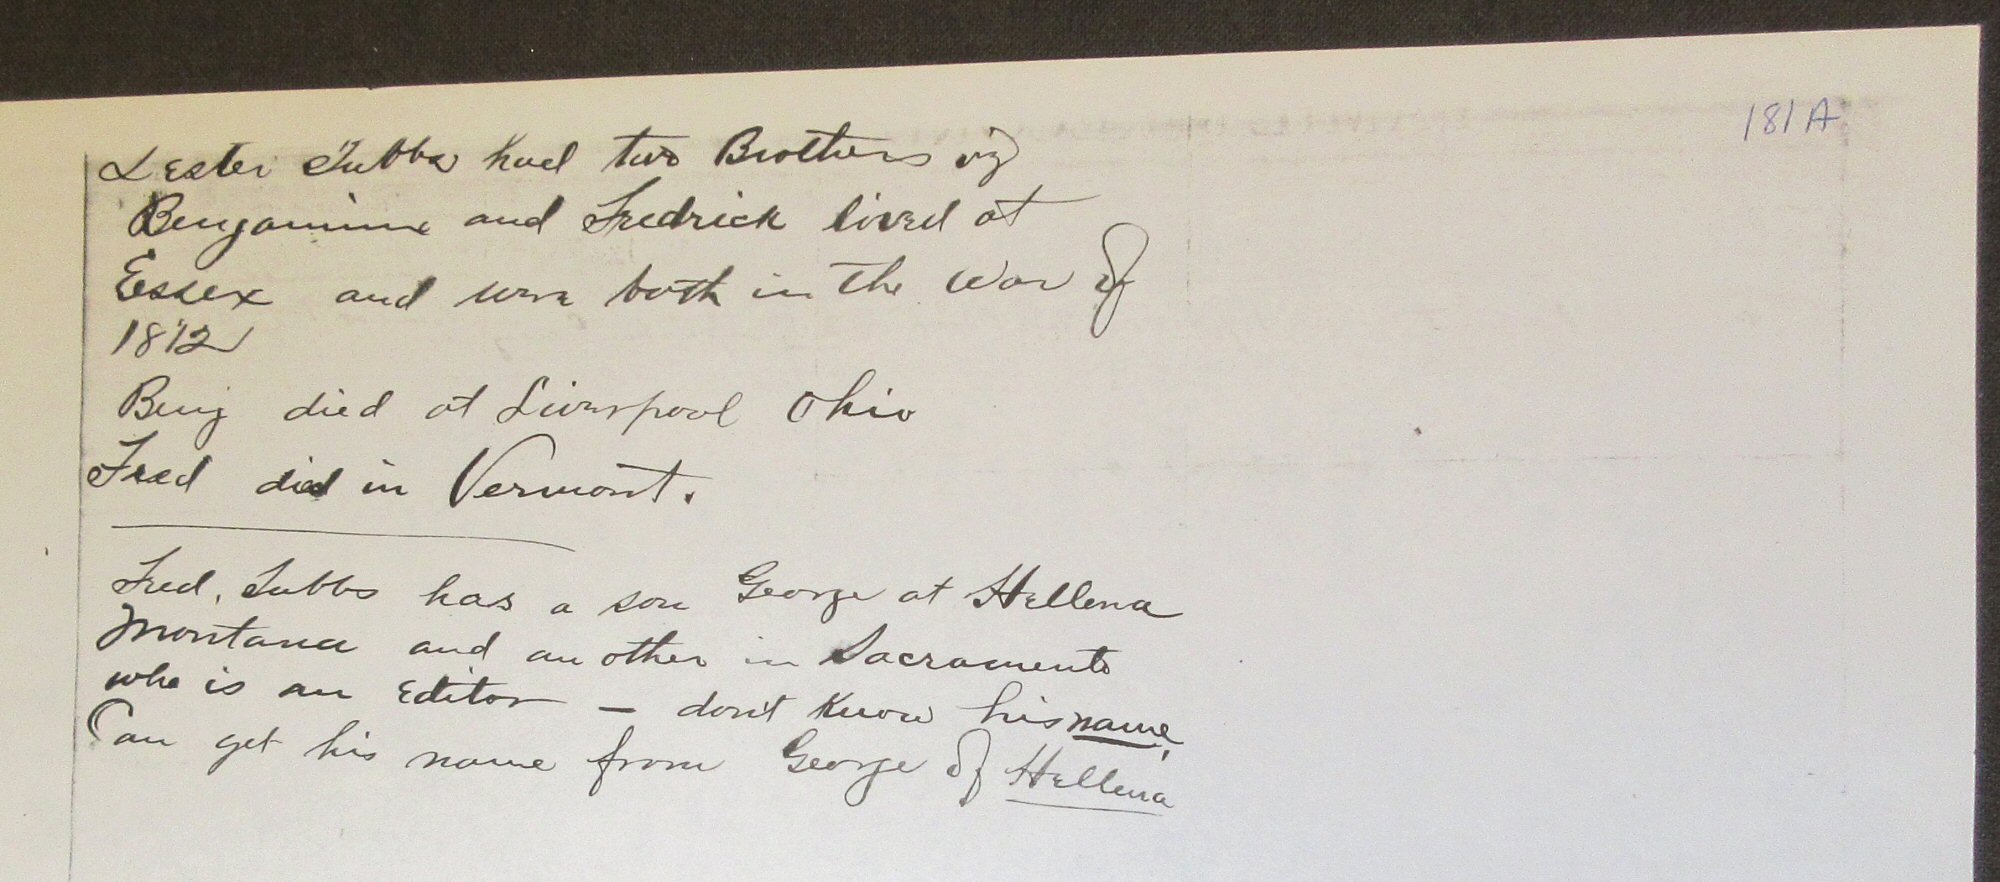 181A
Lester Tubbs had two Brothers viz
Benjamine and Fredrick lived at
Essex and were both in the War of
1812
Benj died at Liverpool Ohio
Fred died in Vermont.
Fred. Tubbs has a son George at Hellena
Montana and an other in Sacramento
who is an Editor — don't know his name.
Can get his name from George of Hellena